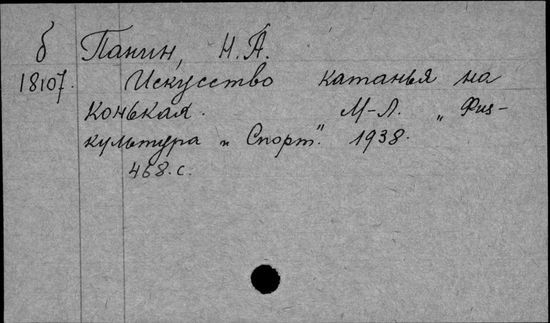 б Панин, Н.А.
18107. Искусство катанья на
коньках. М-Л. „Физ-
культура и Спорт." 1938.
468.с.